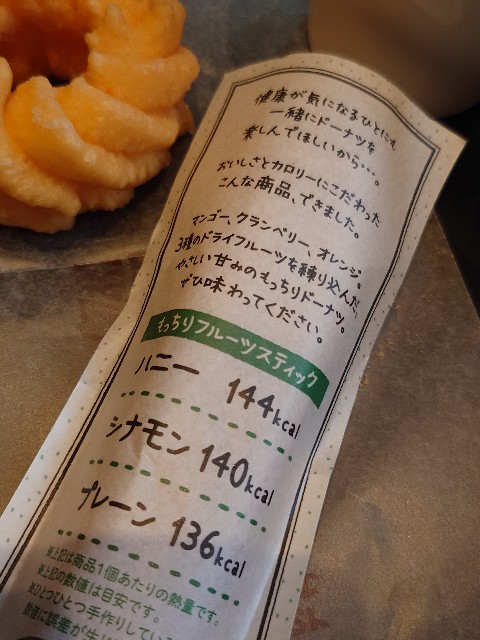 健康が気になるひとにも
一緒にドーナツを
楽しんでほしいから…。
おいしさとカロリーにこだわった
こんな商品、できました。
マンゴー、クランベリー、オレンジ。
3種のドライフルーツを練り込んだ、
やさしい甘みのもっちりドーナツ。
ぜひ味わってください。
もっちりフルーツスティック
ハニー 144kcal
シナモン 140kcal
プレーン 136kcal
※上記は商品1個あたりの熱量です。
※上記の数値は目安です。
※ひとつひとつ手作りしている
数値に誤差が生じ